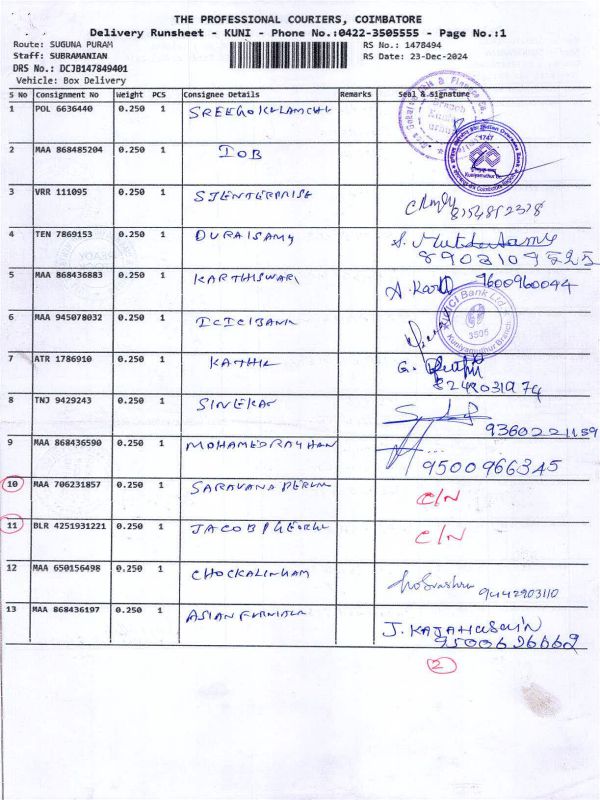 THE PROFESSIONAL COURIERS, COIMBATORE
Delivery Runsheet - KUNI - Phone No.:0422-3505555 - Page No.:1
Route: SUGUNA PURAM RS No.: 1478494
Staff: SUBRAMANIAN RS Date: 23-Dec-2024
DRS No.: DCJB147849401
Vehicle: Box Delivery
S No Consignment No Weight PCS Consignee Details Remarks Seal & Signature
1 POL 6636440 0.250 1
2 MAA 868485204 0.250 1 IOB
3 VRR 111095 0.250 1 SJENTERPRISE
4 TEN 7869153 0.250 1 DURAISAMY
5 MAA 868436883 0.250 1 KARTHISWARI 9600960044
6 MAA 945078032 0.250 1 ICICIBANK
ICICI Bank Ltd
3506
Kuniyamuthur Branch
7 ATR 1786910 0.250 1 KATHIR
8 TNJ 9429243 0.250 1 9360221159
9 MAA 868436590 0.250 1 MOHAMEDRAYHAN 9500966345
10 MAA 706231857 0.250 1 SARAVANA PERUM C/N
11 BLR 4251931221 0.250 1 C/N
12 MAA 650156498 0.250 1 CHOCKALINHAM 9442903110
13 MAA 868436197 0.250 1 ASIAN FURNITUR J. KAJAHUSAIN
2